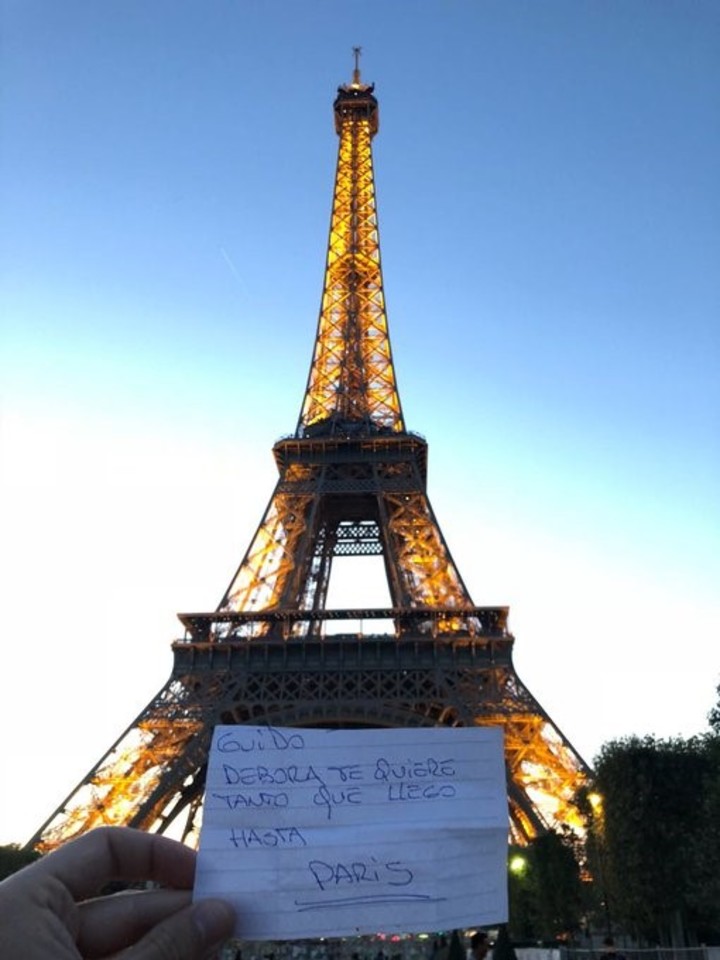 GUIDO
DEBORA TE QUIERE
TANTO QUE LLEGO
HASTA
PARIS